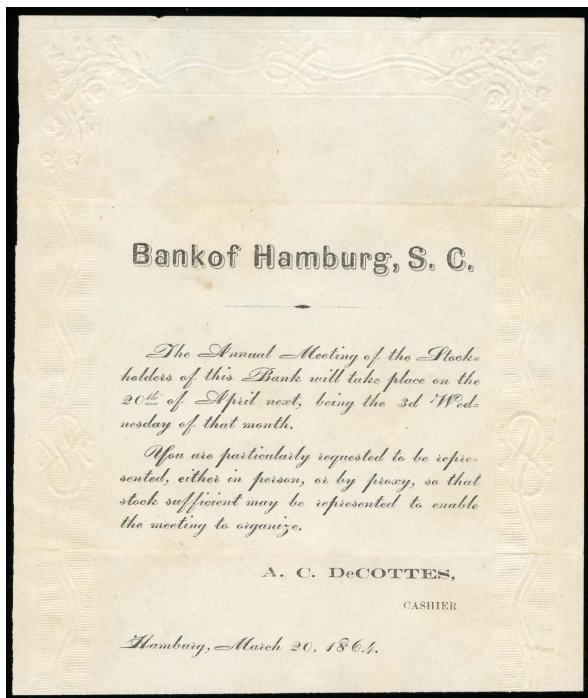 Bank of Hamburg, S. C.
The Annual Meeting of the Stock=
holders of this Bank will take place on the
20th of April next, being the 3d Wed-
nesday of that month.
You are particularly requested to be repre-
sented, either in person, or by proxy, so that
stock sufficient may be represented to enable
the meeting to organize.
A. C. DeCOTTES,
CASHIER
Hamburg, March 20, 1864.